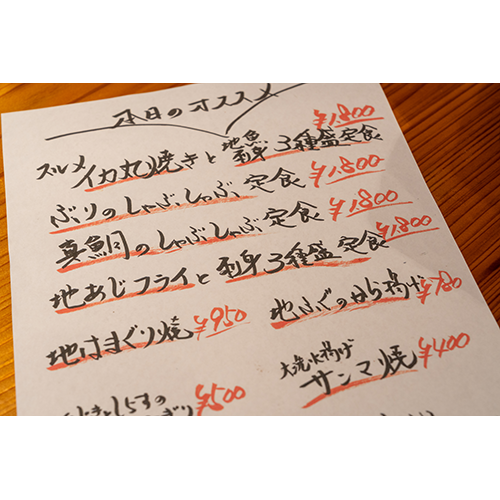 本日のオススメ
スルメイカ丸焼きと地魚刺身3種盛定食 ¥1,800
ぶりのしゃぶしゃぶ定食 ¥1,800
真鯛のしゃぶしゃぶ定食 ¥1,800
地あじフライと刺身3種盛定食 ¥1,800
地はまぐり焼 ¥950
地ふぐのから揚げ ¥780
水揚げ
サンマ焼 ¥400
しらすの
¥500